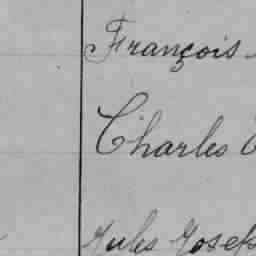 François
Charles
Jules Joseph